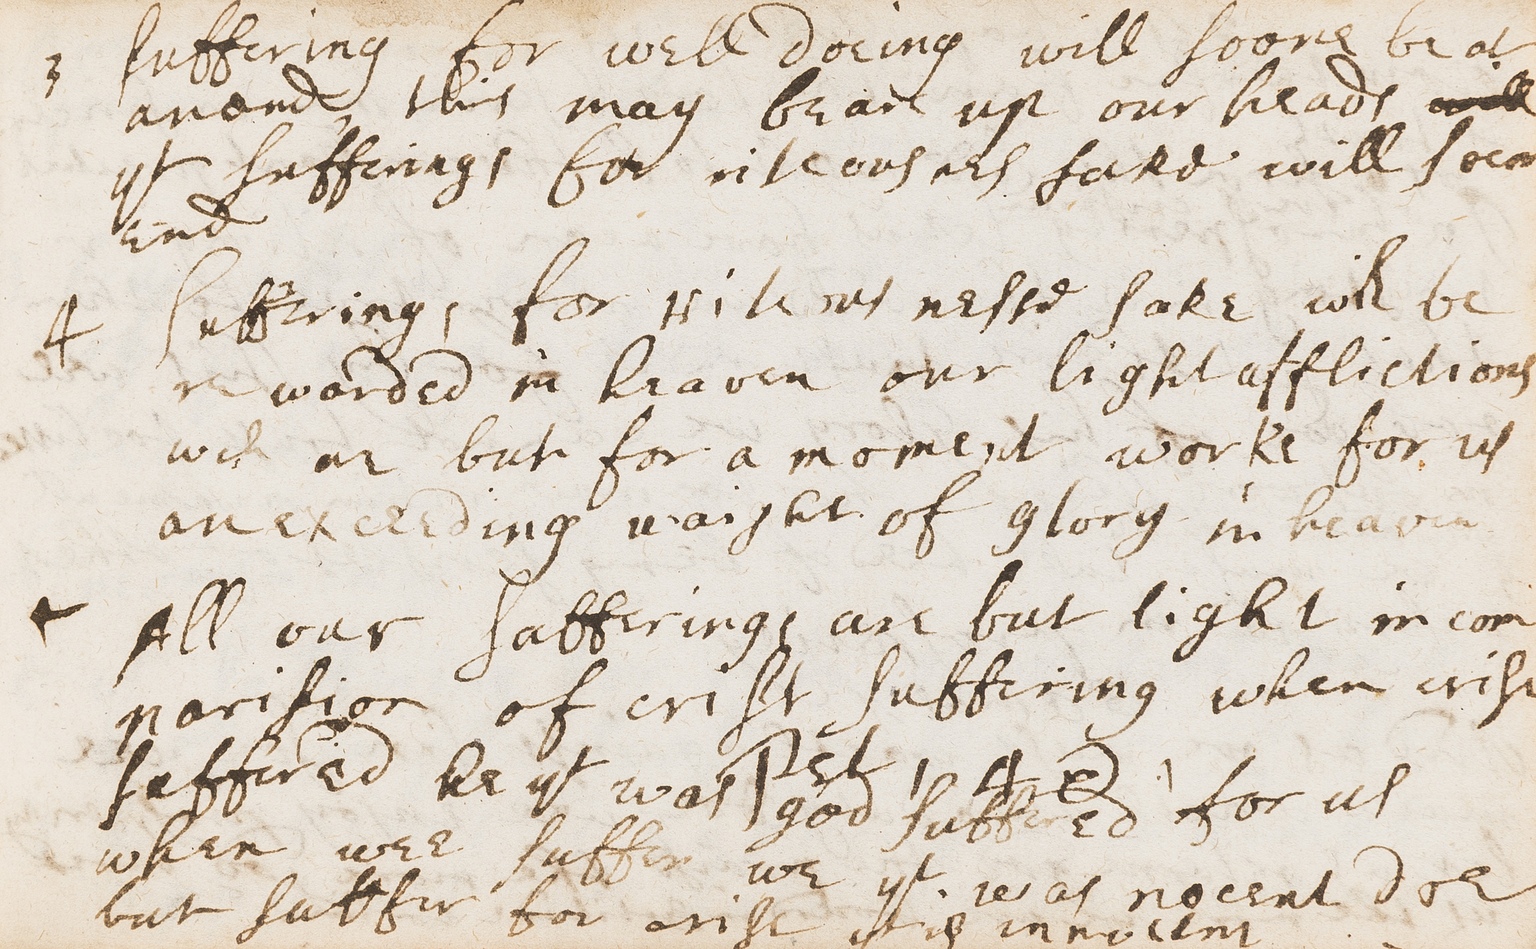 3 suffering for well doeing will soone be at
anend, this may bear up our heads will
yt sufferings for riteousnes sake will soon
end
4 sufferings for riteousnesse sake will be
rewarded in heaven our light afflictions
wch are but for a moment worke for us
an exceeding waight of glory in heaven
All our sufferings are but light in com
parision of crist suffering when crist
suffered he yt was god suffered for us
pet 1 4 1
when wee suffer we yt was nocent doe
but suffer for crist yt is innocent